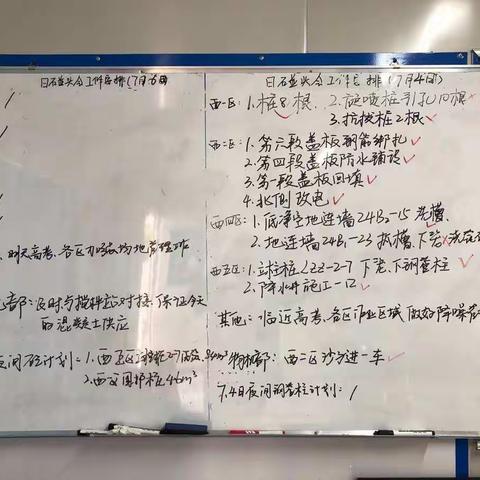 日石碰头会工作安排(7月6日)
明天高考、各区加强场地管理工作
部:及时与搅拌站对接、保证今天
的混凝土供应
夜间砼计划:1.西五区
2.西二区围护桩46m³
日石碰头会工作安排(7月4日)
西一区:1.桩8根 2.旋喷桩引孔10根
3.抗拔桩2根
西二区:1.第六段盖板钢筋绑扎
2.第四段盖板防水铺设
3.第一段盖板回填
4.北侧改电
西四区:1.低净空地连墙24B2-15洗槽
2.地连墙24B1-23成槽、下笼
西五区:1.立柱桩LZZ-2-7下笼、下钢管柱
2.降水井施工一口
其他:临近高考、各区作业区域做好降噪
物机部:西二区沙子进一车
7.4日夜间钢管柱计划:/